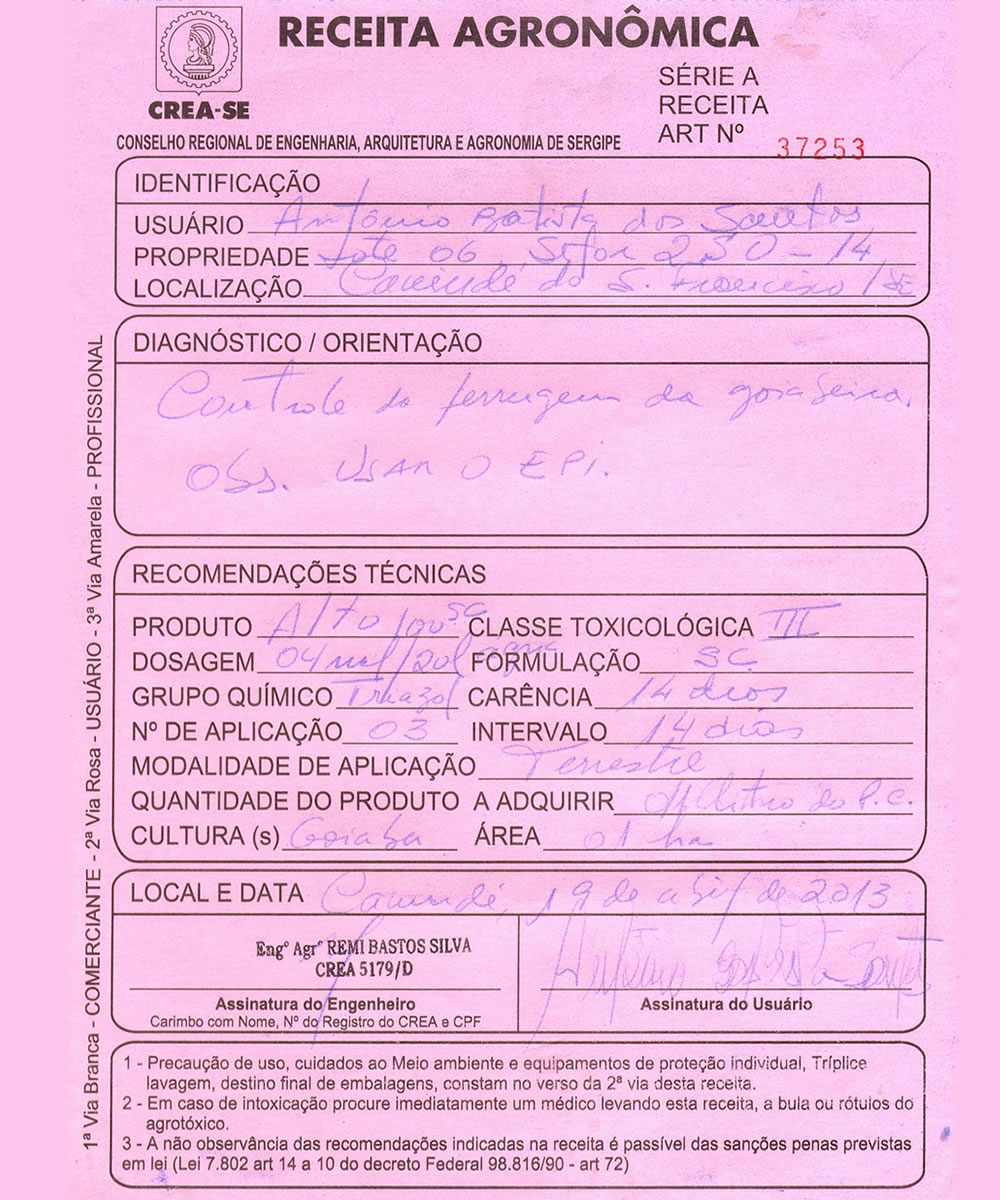 RECEITA AGRONÔMICA
SÉRIE A
RECEITA
ART Nº 37253
CREA-SE
CONSELHO REGIONAL DE ENGENHARIA, ARQUITETURA E AGRONOMIA DE SERGIPE
IDENTIFICAÇÃO
USUÁRIO Antônio Batista dos Santos
PROPRIEDADE Lote 06, Setor 250-14
LOCALIZAÇÃO Canindé do S. Francisco/SE
DIAGNÓSTICO / ORIENTAÇÃO
Controle da ferrugem da goiabeira.
Obs. USAR O EPI.
RECOMENDAÇÕES TÉCNICAS
PRODUTO Alto 100 SC CLASSE TOXICOLÓGICA III
DOSAGEM 04 ml/20l água FORMULAÇÃO SC
GRUPO QUÍMICO Triazol CARÊNCIA 14 dias
Nº DE APLICAÇÃO 03 INTERVALO 14 dias
MODALIDADE DE APLICAÇÃO Terrestre
QUANTIDADE DO PRODUTO A ADQUIRIR litro do P.C.
CULTURA (s) Goiaba ÁREA 01 ha
LOCAL E DATA Canindé, 19 de abril de 2013
Engº Agrº REMI BASTOS SILVA
CREA 5179/D
Assinatura do Engenheiro
Carimbo com Nome, Nº do Registro do CREA e CPF
Assinatura do Usuário
1 - Precaução de uso, cuidados ao Meio ambiente e equipamentos de proteção individual, Tríplice
lavagem, destino final de embalagens, constam no verso da 2ª via desta receita.
2 - Em caso de intoxicação procure imediatamente um médico levando esta receita, a bula ou rótulos do
agrotóxico.
3 - A não observância das recomendações indicadas na receita é passível das sanções penas previstas
em lei (Lei 7.802 art 14 a 10 do decreto Federal 98.816/90 - art 72)
1ª Via Branca - COMERCIANTE - 2ª Via Rosa - USUÁRIO - 3ª Via Amarela - PROFISSIONAL